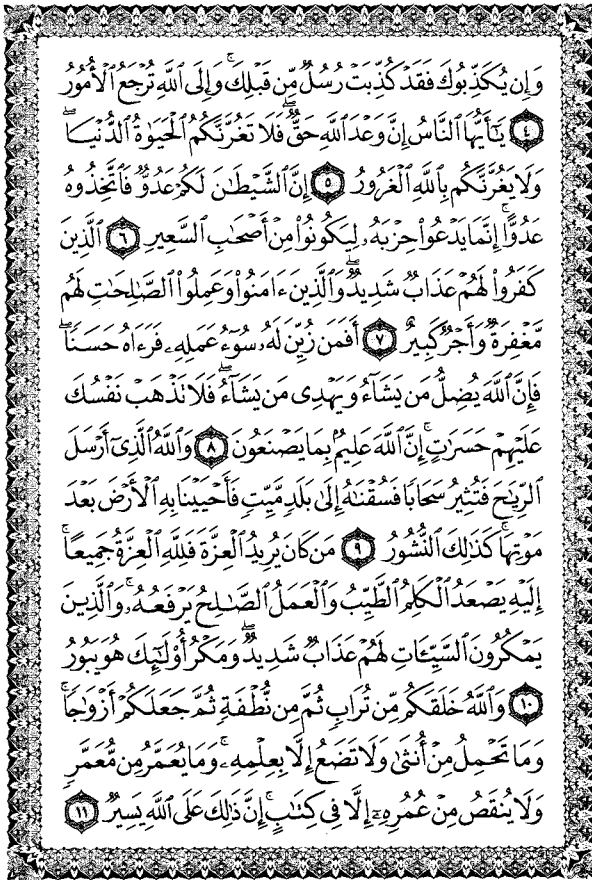 وَإِن يُكَذِّبُوكَ فَقَدْ كُذِّبَتْ رُسُلٌ مِّن قَبْلِكَ ۚ وَإِلَى ٱللَّهِ تُرْجَعُ ٱلْأُمُورُ
﴿٤﴾ يَٰٓأَيُّهَا ٱلنَّاسُ إِنَّ وَعْدَ ٱللَّهِ حَقٌّ ۖ فَلَا تَغُرَّنَّكُمُ ٱلْحَيَوٰةُ ٱلدُّنْيَا ۖ
وَلَا يَغُرَّنَّكُم بِٱللَّهِ ٱلْغَرُورُ ﴿٥﴾ إِنَّ ٱلشَّيْطَٰنَ لَكُمْ عَدُوٌّ فَٱتَّخِذُوهُ
عَدُوًّا ۚ إِنَّمَا يَدْعُوا۟ حِزْبَهُۥ لِيَكُونُوا۟ مِنْ أَصْحَٰبِ ٱلسَّعِيرِ ﴿٦﴾ ٱلَّذِينَ
كَفَرُوا۟ لَهُمْ عَذَابٌ شَدِيدٌ ۖ وَٱلَّذِينَ ءَامَنُوا۟ وَعَمِلُوا۟ ٱلصَّٰلِحَٰتِ لَهُم
مَّغْفِرَةٌ وَأَجْرٌ كَبِيرٌ ﴿٧﴾ أَفَمَن زُيِّنَ لَهُۥ سُوٓءُ عَمَلِهِۦ فَرَءَاهُ حَسَنًا ۖ
فَإِنَّ ٱللَّهَ يُضِلُّ مَن يَشَآءُ وَيَهْدِى مَن يَشَآءُ ۖ فَلَا تَذْهَبْ نَفْسُكَ
عَلَيْهِمْ حَسَرَٰتٍ ۚ إِنَّ ٱللَّهَ عَلِيمٌۢ بِمَا يَصْنَعُونَ ﴿٨﴾ وَٱللَّهُ ٱلَّذِىٓ أَرْسَلَ
ٱلرِّيَٰحَ فَتُثِيرُ سَحَابًا فَسُقْنَٰهُ إِلَىٰ بَلَدٍ مَّيِّتٍ فَأَحْيَيْنَا بِهِ ٱلْأَرْضَ بَعْدَ
مَوْتِهَا ۚ كَذَٰلِكَ ٱلنُّشُورُ ﴿٩﴾ مَن كَانَ يُرِيدُ ٱلْعِزَّةَ فَلِلَّهِ ٱلْعِزَّةُ جَمِيعًا ۚ
إِلَيْهِ يَصْعَدُ ٱلْكَلِمُ ٱلطَّيِّبُ وَٱلْعَمَلُ ٱلصَّٰلِحُ يَرْفَعُهُۥ ۚ وَٱلَّذِينَ
يَمْكُرُونَ ٱلسَّيِّـَٔاتِ لَهُمْ عَذَابٌ شَدِيدٌ ۖ وَمَكْرُ أُو۟لَٰٓئِكَ هُوَ يَبُورُ
﴿١٠﴾ وَٱللَّهُ خَلَقَكُم مِّن تُرَابٍ ثُمَّ مِن نُّطْفَةٍ ثُمَّ جَعَلَكُمْ أَزْوَٰجًا ۚ
وَمَا تَحْمِلُ مِنْ أُنثَىٰ وَلَا تَضَعُ إِلَّا بِعِلْمِهِۦ ۚ وَمَا يُعَمَّرُ مِن مُّعَمَّرٍ
وَلَا يُنقَصُ مِنْ عُمُرِهِۦٓ إِلَّا فِى كِتَٰبٍ ۚ إِنَّ ذَٰلِكَ عَلَى ٱللَّهِ يَسِيرٌ ﴿١١﴾